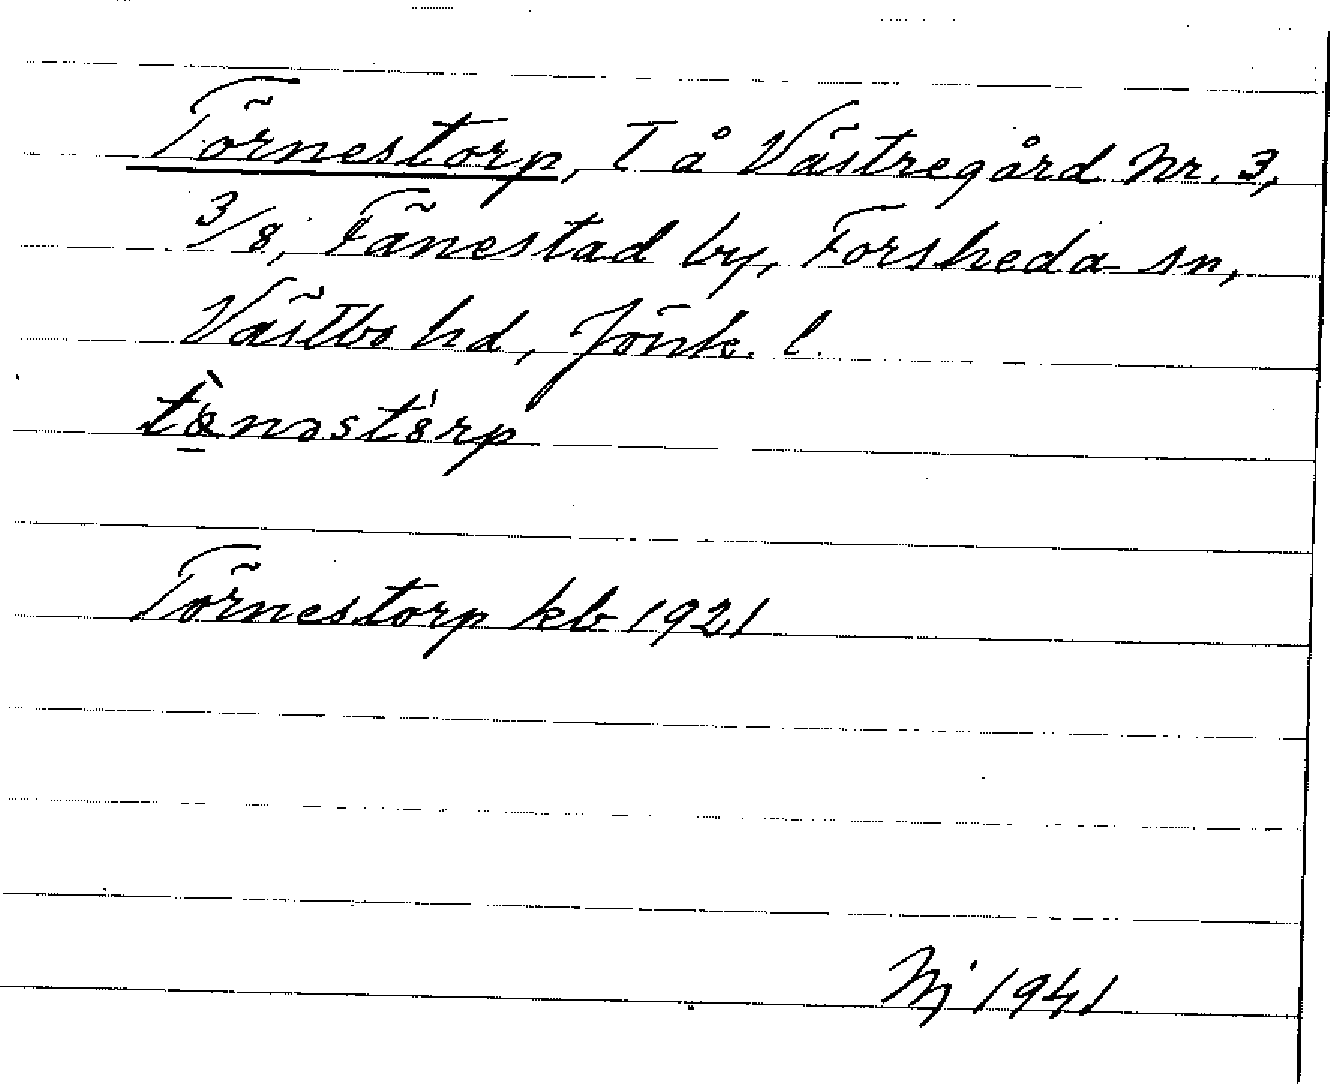 Törnestorp, T å Västregård Nr. 3,
3/8, Fänestad by, Forsheda sn,
Västbo hd, Jönk. l.
Törnestorp kb 1921
Nj 1941